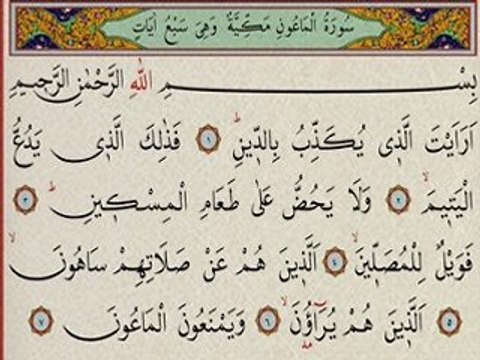 سُورَةُ الْمَاعُونِ مَكِّيَّةٌ وَهِىَ سَبْعُ اٰيَاتٍ
بِسْــــمِ اللّٰهِ الرَّحْمٰنِ الرَّحٖيمِ
اَرَاَيْتَ الَّذٖى يُكَذِّبُ بِالدّٖينِؕ ﴿١﴾ فَذٰلِكَ الَّذٖى يَدُعُّ
الْيَتٖيمَۙ ﴿٢﴾ وَلَا يَحُضُّ عَلٰى طَعَامِ الْمِسْكٖينِؕ ﴿٣﴾
فَوَيْلٌ لِلْمُصَلّٖينَۙ ﴿٤﴾ اَلَّذٖينَ هُمْ عَنْ صَلَاتِهِمْ سَاهُونَۙ
﴿٥﴾ اَلَّذٖينَ هُمْ يُرَآؤُنَۙ ﴿٦﴾ وَيَمْنَعُونَ الْمَاعُونَ ﴿٧﴾